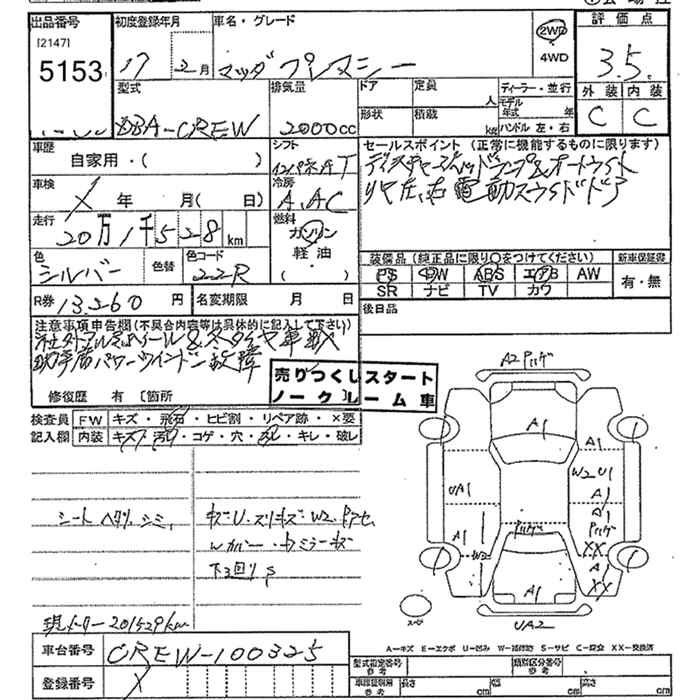 出品番号 初度登録年月 車名・グレード 評価点
[2147]
5153 17 2月 マツダ プレマシー 2WD 4WD 3.5.
型式 排気量 ドア 定員 人 ディーラー・並行 外装 内装
DBA-CREW 2000cc 形状 積載 kg モデル年式 年 ハンドル 左・右 C C
車歴 シフト セールスポイント(正常に機能するものに限ります)
自家用・( ) インパネAT
車検 X 年 月( 日) 冷房 A.AC リヤ左、右電動スライドドア
走行 20万1千528km 燃料 ガソリン
軽油
( )
装備品(純正品に限り○をつけてください) 新車保証書
色 シルバー 色替 色コード 22R PS PW ABS エアB AW 有・無
SR ナビ TV カワ
R券 13260円 名変期限 月 日 後日品
注意事項申告欄(不具合内容等は具体的に記入して下さい)
助手席パワーウインドー故障
修復歴 有 [箇所
売りつくしスタート
ノークレーム車
検査員 FW キズ・飛石・ヒビ割・リペア跡・×要
記入欄 内装 キズ・汚れ・コゲ・穴・スレ・キレ・破レ
A2 ハゲ
A1
A1
W2 U1
UA1
A1
A1
ハゲ
ハゲ
XX
W2
A1
A1
XX
スペア
UA2
シート ヘタリ シミ,
キズU・スリキズ・W2
Wカバー・
下回りS
現メーター201529km
A-キズ E-エクボ U-凹み W-補修跡 S-サビ C-腐食 XX-交換済
車台番号 CREW-100325
登録番号 X
型式指定番号 参考 類別区分番号 参考
車検証記載 参考 長さ cm 幅 cm 高さ cm